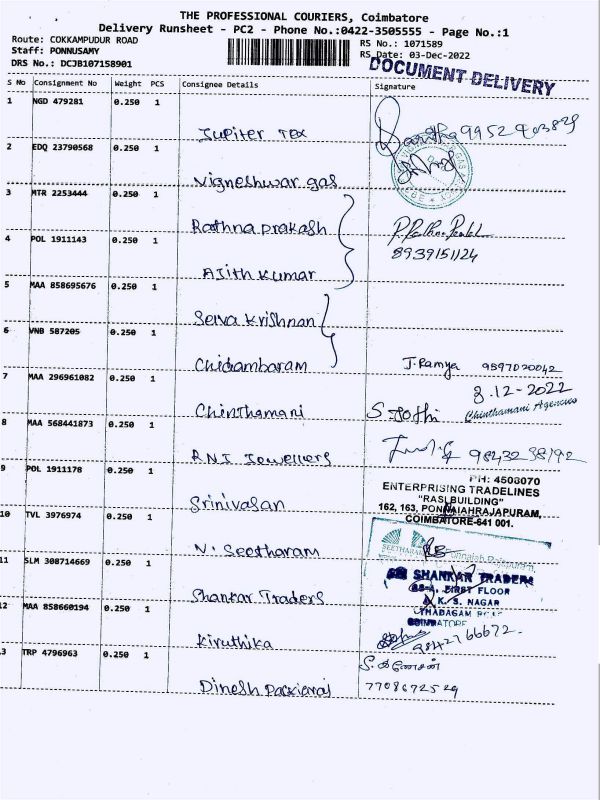 THE PROFESSIONAL COURIERS, Coimbatore
Delivery Runsheet - PC2 - Phone No.:0422-3505555 - Page No.:1
Route: COKKAMPUDUR ROAD
RS No.: 1071589
Staff: PONNUSAMY
RS Date: 03-Dec-2022
DRS No.: DCJB107158901
DOCUMENT DELIVERY
S No Consignment No Weight PCS Consignee Details Signature
1 NGD 479281 0.250 1
Jupiter Tex
2 EDQ 23790568 0.250 1
Vigneshwar gas
3 MTR 2253444 0.250 1
Rathna Prakash
8939151124
4 POL 1911143 0.250 1
Ajith Kumar
5 MAA 858695676 0.250 1
Selva Krishnan
6 VNB 587205 0.250 1
Chidambaram J. Ramya 9597020042
7 MAA 296961082 0.250 1
3.12-2022
Chinthamani S. Jothi Chinthamani Agencies
8 MAA 568441873 0.250 1
RNI Jewellers
9 POL 1911178 0.250 1
PH: 4508070
ENTERPRISING TRADELINES
"RASI BUILDING"
Srinivasan
162, 163, PONNAIAHRAJAPURAM,
COIMBATORE-641 001.
10 TVL 3976974 0.250 1
N. Seetharam
SEETHARAM
11 SLM 308714669 0.250 1
SHANKAR TRADERS
FIRST FLOOR
Shankar Traders
K. S. NAGAR
THADAGAM ROAD
COIMBATORE
12 MAA 858660194 0.250 1
Kiruthika 9842766672.
13 TRP 4796963 0.250 1
S. கணேசன்
Dinesh Packiaraj 7708672529